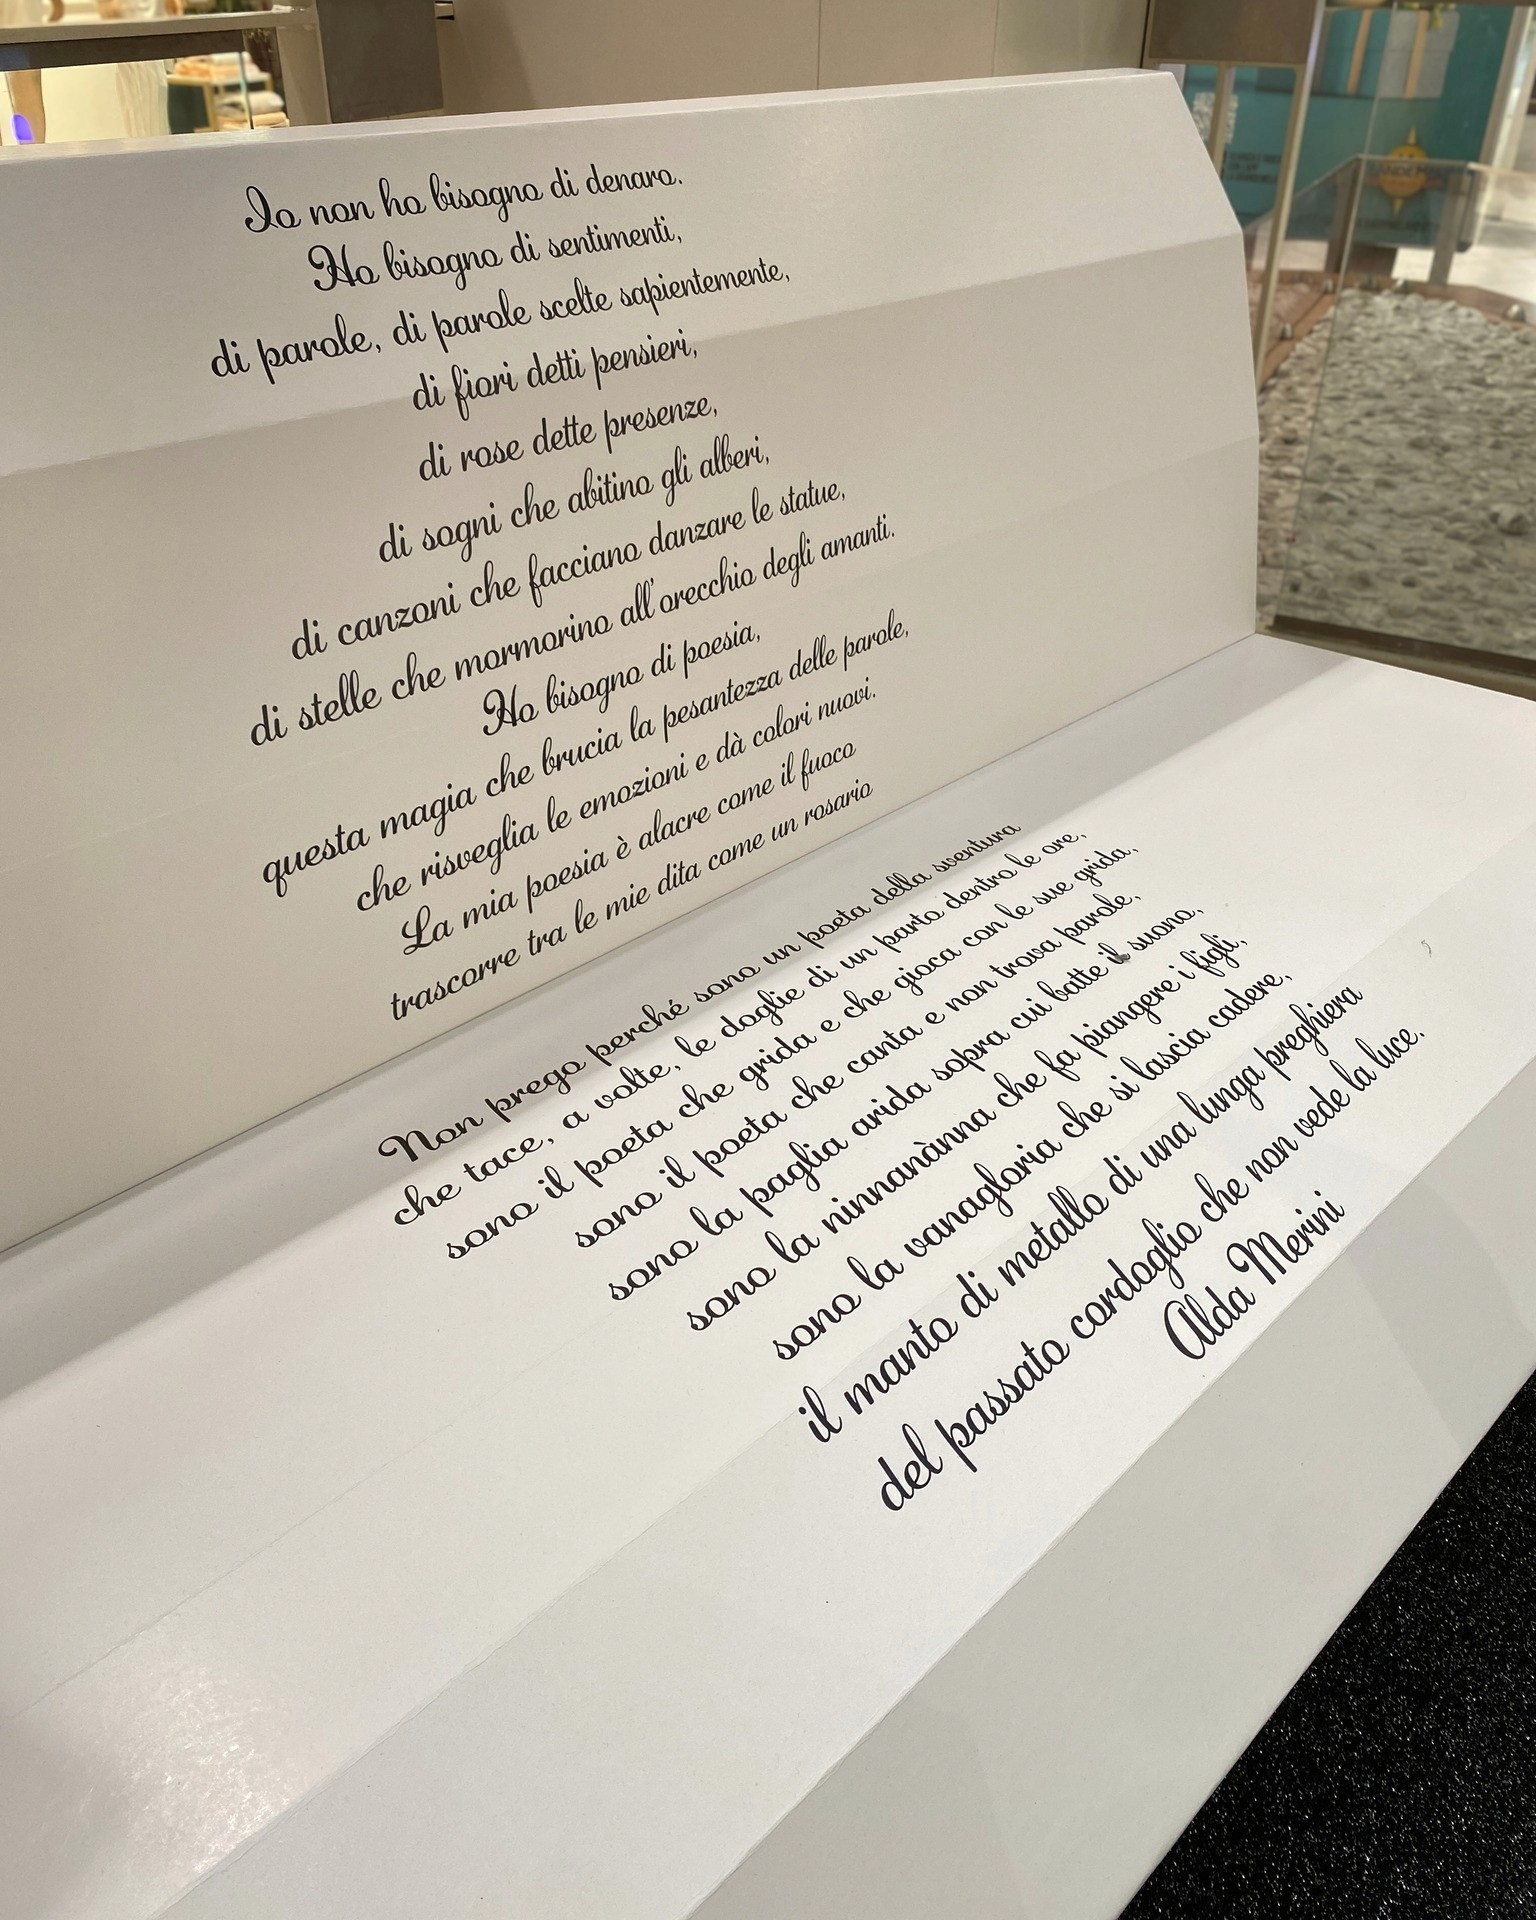 Io non ho bisogno di denaro.
Ho bisogno di sentimenti,
di parole, di parole scelte sapientemente,
di fiori detti pensieri,
di rose dette presenze,
di sogni che abitino gli alberi,
di canzoni che facciano danzare le statue,
di stelle che mormorino all'orecchio degli amanti.
Ho bisogno di poesia,
questa magia che brucia la pesantezza delle parole,
che risveglia le emozioni e dà colori nuovi.
La mia poesia è alacre come il fuoco
trascorre tra le mie dita come un rosario
Non prego perché sono un poeta della sventura
che tace, a volte, le doglie di un parto dentro le ore,
sono il poeta che grida e che gioca con le sue grida,
sono il poeta che canta e non trova parole,
sono la paglia arida sopra cui batte il suono,
sono la ninnanànna che fa piangere i figli,
sono la vanagloria che si lascia cadere,
il manto di metallo di una lunga preghiera
del passato cordoglio che non vede la luce.
Alda Merini